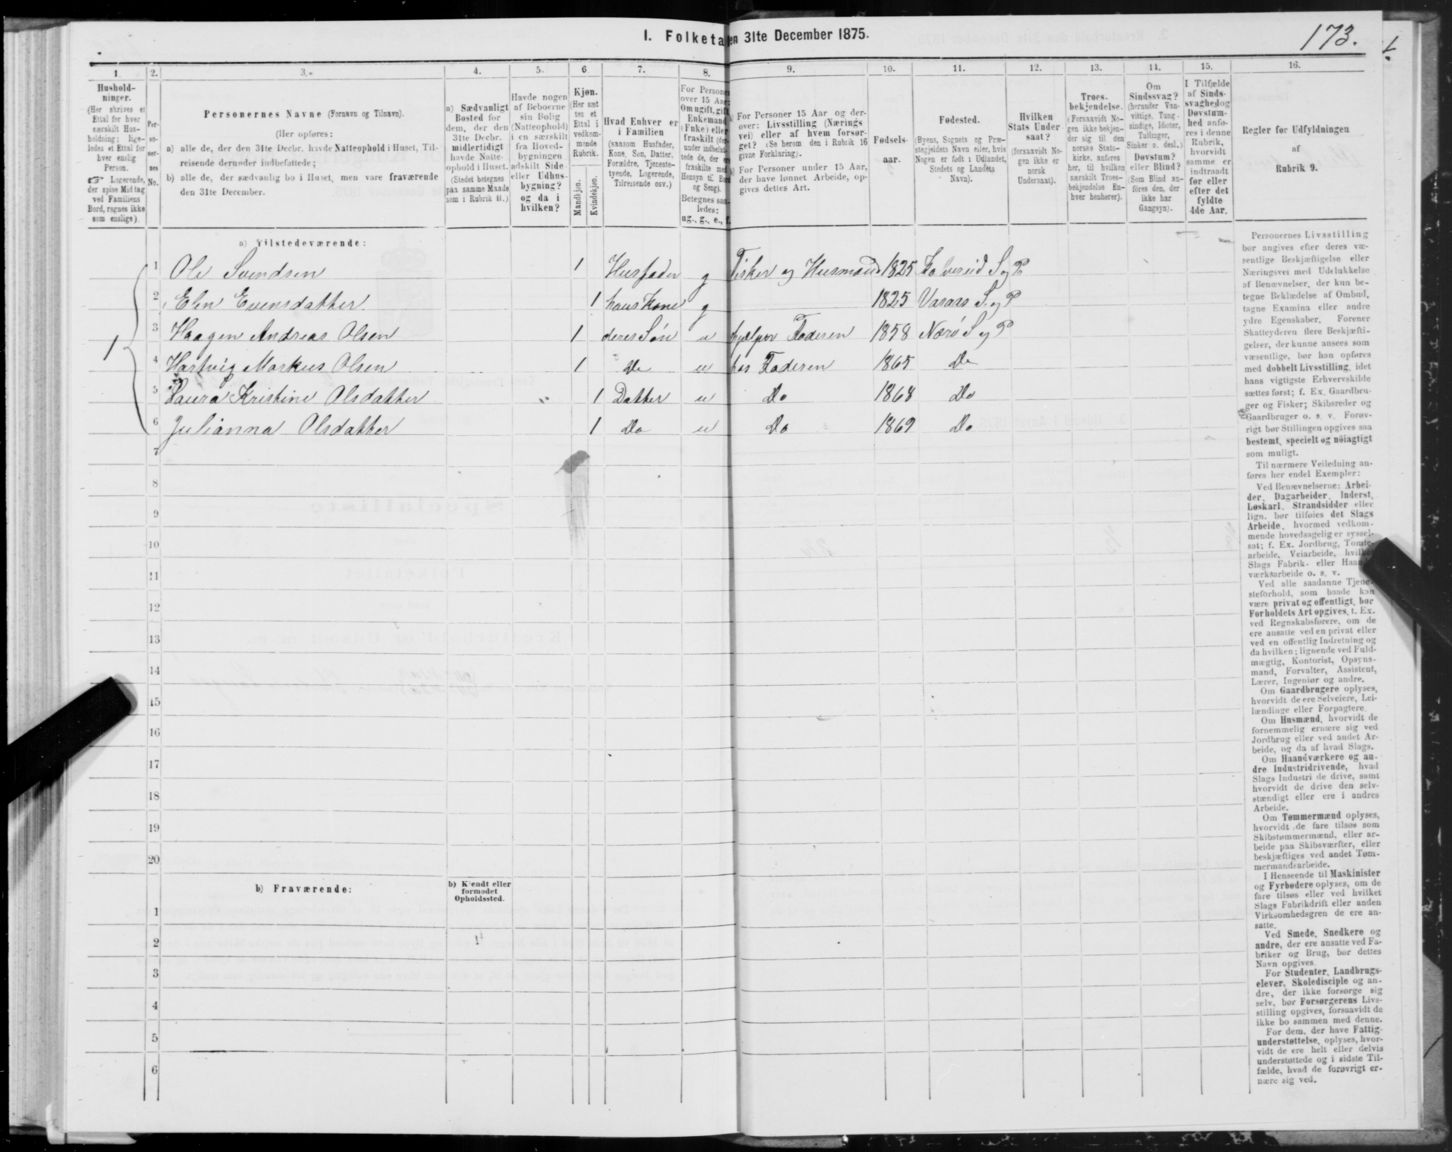 I. Folketal den 31te December 1875.
173.
1. 2. 3. 4. 5. 6 7. 8. 9. 10. 11. 12. 13. 14. 15. 16.
Husholdninger.
(Her skrives et
Ettal for hver
særskilt Husholdning;
ligeledes et Ettal for
hver enslig
Person.
Logerende,
der spise Middag
ved Familiens
Bord, regnes ikke
som enslige).
Personernes Navne (Fornavn og Tilnavn).
(Her opføres:
a) alle de, der den 31te Decbr. havde Natteophold i Huset, Tilreisende
derunder indbefattede;
b) alle de, der sædvanlig bo i Huset, men vare fraværende
den 31te December.
a) Sædvanligt
Bosted for
dem, der den
31te Decbr.
midlertidigt
havde Natteophold
i Huset.
(Stedet betegnes
paa samme Maade
som i Rubrik 11.)
Havde nogen
af Beboerne
sin Bolig
(Natteophold)
i en særskilt
fra Hovedbygningen
adskilt Side
eller Udhusbygning?
og da i
hvilken?
Kjøn.
(Her sættes
et
Ettal i
vedkommende
Rubrik.
Mandkjøn.
Kvindekjøn.
Hvad Enhver er
i Familien
(saasom Husfader,
Kone, Søn, Datter,
Forældre, Tjenestetyende,
Logerende,
Tilreisende osv.)
For Personer
over 15 Aar:
Om ugift, gift,
Enkemand
(Enke) eller
fraskilt
For Personer 15 Aar og derover:
Livsstilling (Næringsvei)
eller af hvem forsørget?
(Se herom den i Rubrik 16
givne Forklaring).
For Personer under 15 Aar,
der have lønnet Arbeide, opgives
dettes Art.
Fødselsaar.
Fødested.
(Byens, Sognets og Præstegjeldets
Navn eller, hvis
Nogen er født i Udlandet,
Stedets og Landets
Navn).
Hvilken
Stats Undersaat?
(forsaavidt Nogen
ikke er
norsk
Undersaat).
Troesbekjendelse.
(Forsaavidt Nogen
ikke bekjender
sig til den
norske Statskirke,
anføres
her, til hvilken
særskilt Troesbekjendelse
Enhver
henhører).
Om
Sindssvag?
(herunder Vanvittige,
Tungsindige,
Idioter,
Tullinger,
Sinker o. desl.)
Døvstum?
eller Blind?
(Som Blind anføres
den, der
ikke har
Gangsyn).
I Tilfælde
af Sindssvaghed
og
Døvstumhed
anføres
i denne
Rubrik,
hvorvidt
samme er
indtraadt
før eller
efter det
fyldte
4de Aar.
Regler for Udfyldningen
af
Rubrik 9.
a) Tilstedeværende:
1
1 Ole Svendsen 1 Husfader g Fisker og Husmand 1825 Folvereid S og P
2 Elen Evensdatter 1 hans Kone g 1825 S og P
3 Haagen Andreas Olsen 1 deres Søn u hjælper Faderen 1858 Nærø S og P
4 Hartvig Markus Olsen 1 Do u hos Faderen 1865 Do
5 Laura Kristine Olsdatter 1 Datter u Do 1868 Do
6 Julianna Olsdatter 1 Do u Do 1869 Do
7
8
9
10
11
12
13
14
15
16
17
18
19
20
b) Fraværende:
b) Kjendt eller
formodet
Opholdssted.
1
2
3
4
5
6
Personernes Livsstilling
bør angives efter deres væsentlige
Beskjæftigelse eller
Næringsvei med Udelukkelse
af Benævnelser, der kun betegne
Beklædelse af Ombud,
tagne Examina eller andre
ydre Egenskaber. Forener
Skatteyderen flere Beskjæftigelser,
der kunne ansees som
væsentlige, bør han opføres
med dobbelt Livsstilling, idet
hans vigtigste Erhvervskilde
sættes først; f. Ex. Gaardbruger
og Fisker; Skibsreder og
Gaardbruger o. s. v. Forøvrigt
bør Stillingen opgives saa
bestemt, specielt og nøiagtigt
som muligt.
Til nærmere Veiledning anføres
her endel Exempler:
Ved Benævnelserne: Arbeider,
Dagarbeider, Inderst,
Løskarl, Strandsidder eller
lign. bør tilføies det Slags
Arbeide, hvormed vedkommende
hovedsagelig er sysselsat;
f. Ex. Jordbrug, Tomtearbeide,
Veiarbeide, hvilket
Slags Fabrik- eller Haandværksarbeide
o. s. v.
Ved alle saadanne Tjenesteforhold,
som baade kan
være privat og offentligt, bør
Forholdets Art opgives, t. Ex.
ved Regnskabsførere, om de
ere ansatte ved en privat eller
ved en offentlig Indretning og
da hvilken; lignende ved Fuldmægtig,
Kontorist, Opsynsmand,
Forvalter, Assistent,
Lærer, Ingeniør og andre.
Om Gaardbrugere oplyses,
hvorvidt de ere Selveiere, Leilændinge
eller Forpagtere.
Om Husmænd, hvorvidt de
fornemmelig ernære sig ved
Jordbrug eller ved andet Arbeide,
og da af hvad Slags.
Om Haandværkere og andre
Industridrivende, hvad
Slags Industri de drive, samt
hvorvidt de drive den selvstændigt
eller ere i andres
Arbeide.
Om Tømmermænd oplyses,
hvorvidt de fare tilsøs som
Skibstømmermænd, eller arbeide
paa Skibsværfter, eller
beskjæftiges ved andet Tømmermandsarbeide.
I Henseende til Maskinister
og Fyrbødere oplyses, om de
fare tilsøs eller ved hvilket
Slags Fabrikdrift eller anden
Virksomhedsgren de ere ansatte.
Ved Smede, Snedkere og
andre, der ere ansatte ved Fabriker
og Brug, bør dettes
Navn opgives.
For Studenter, Landbrugselever,
Skoledisciple og andre,
der ikke forsørge sig
selv, bør Forsørgerens Livsstilling
opgives, forsaavidt de
ikke bo sammen med denne.
For dem, der have Fattigunderstøttelse,
oplyses, hvorvidt
de ere helt eller delvis
understøttede og i sidste Tilfælde,
hvad de forøvrigt ernære
sig ved.